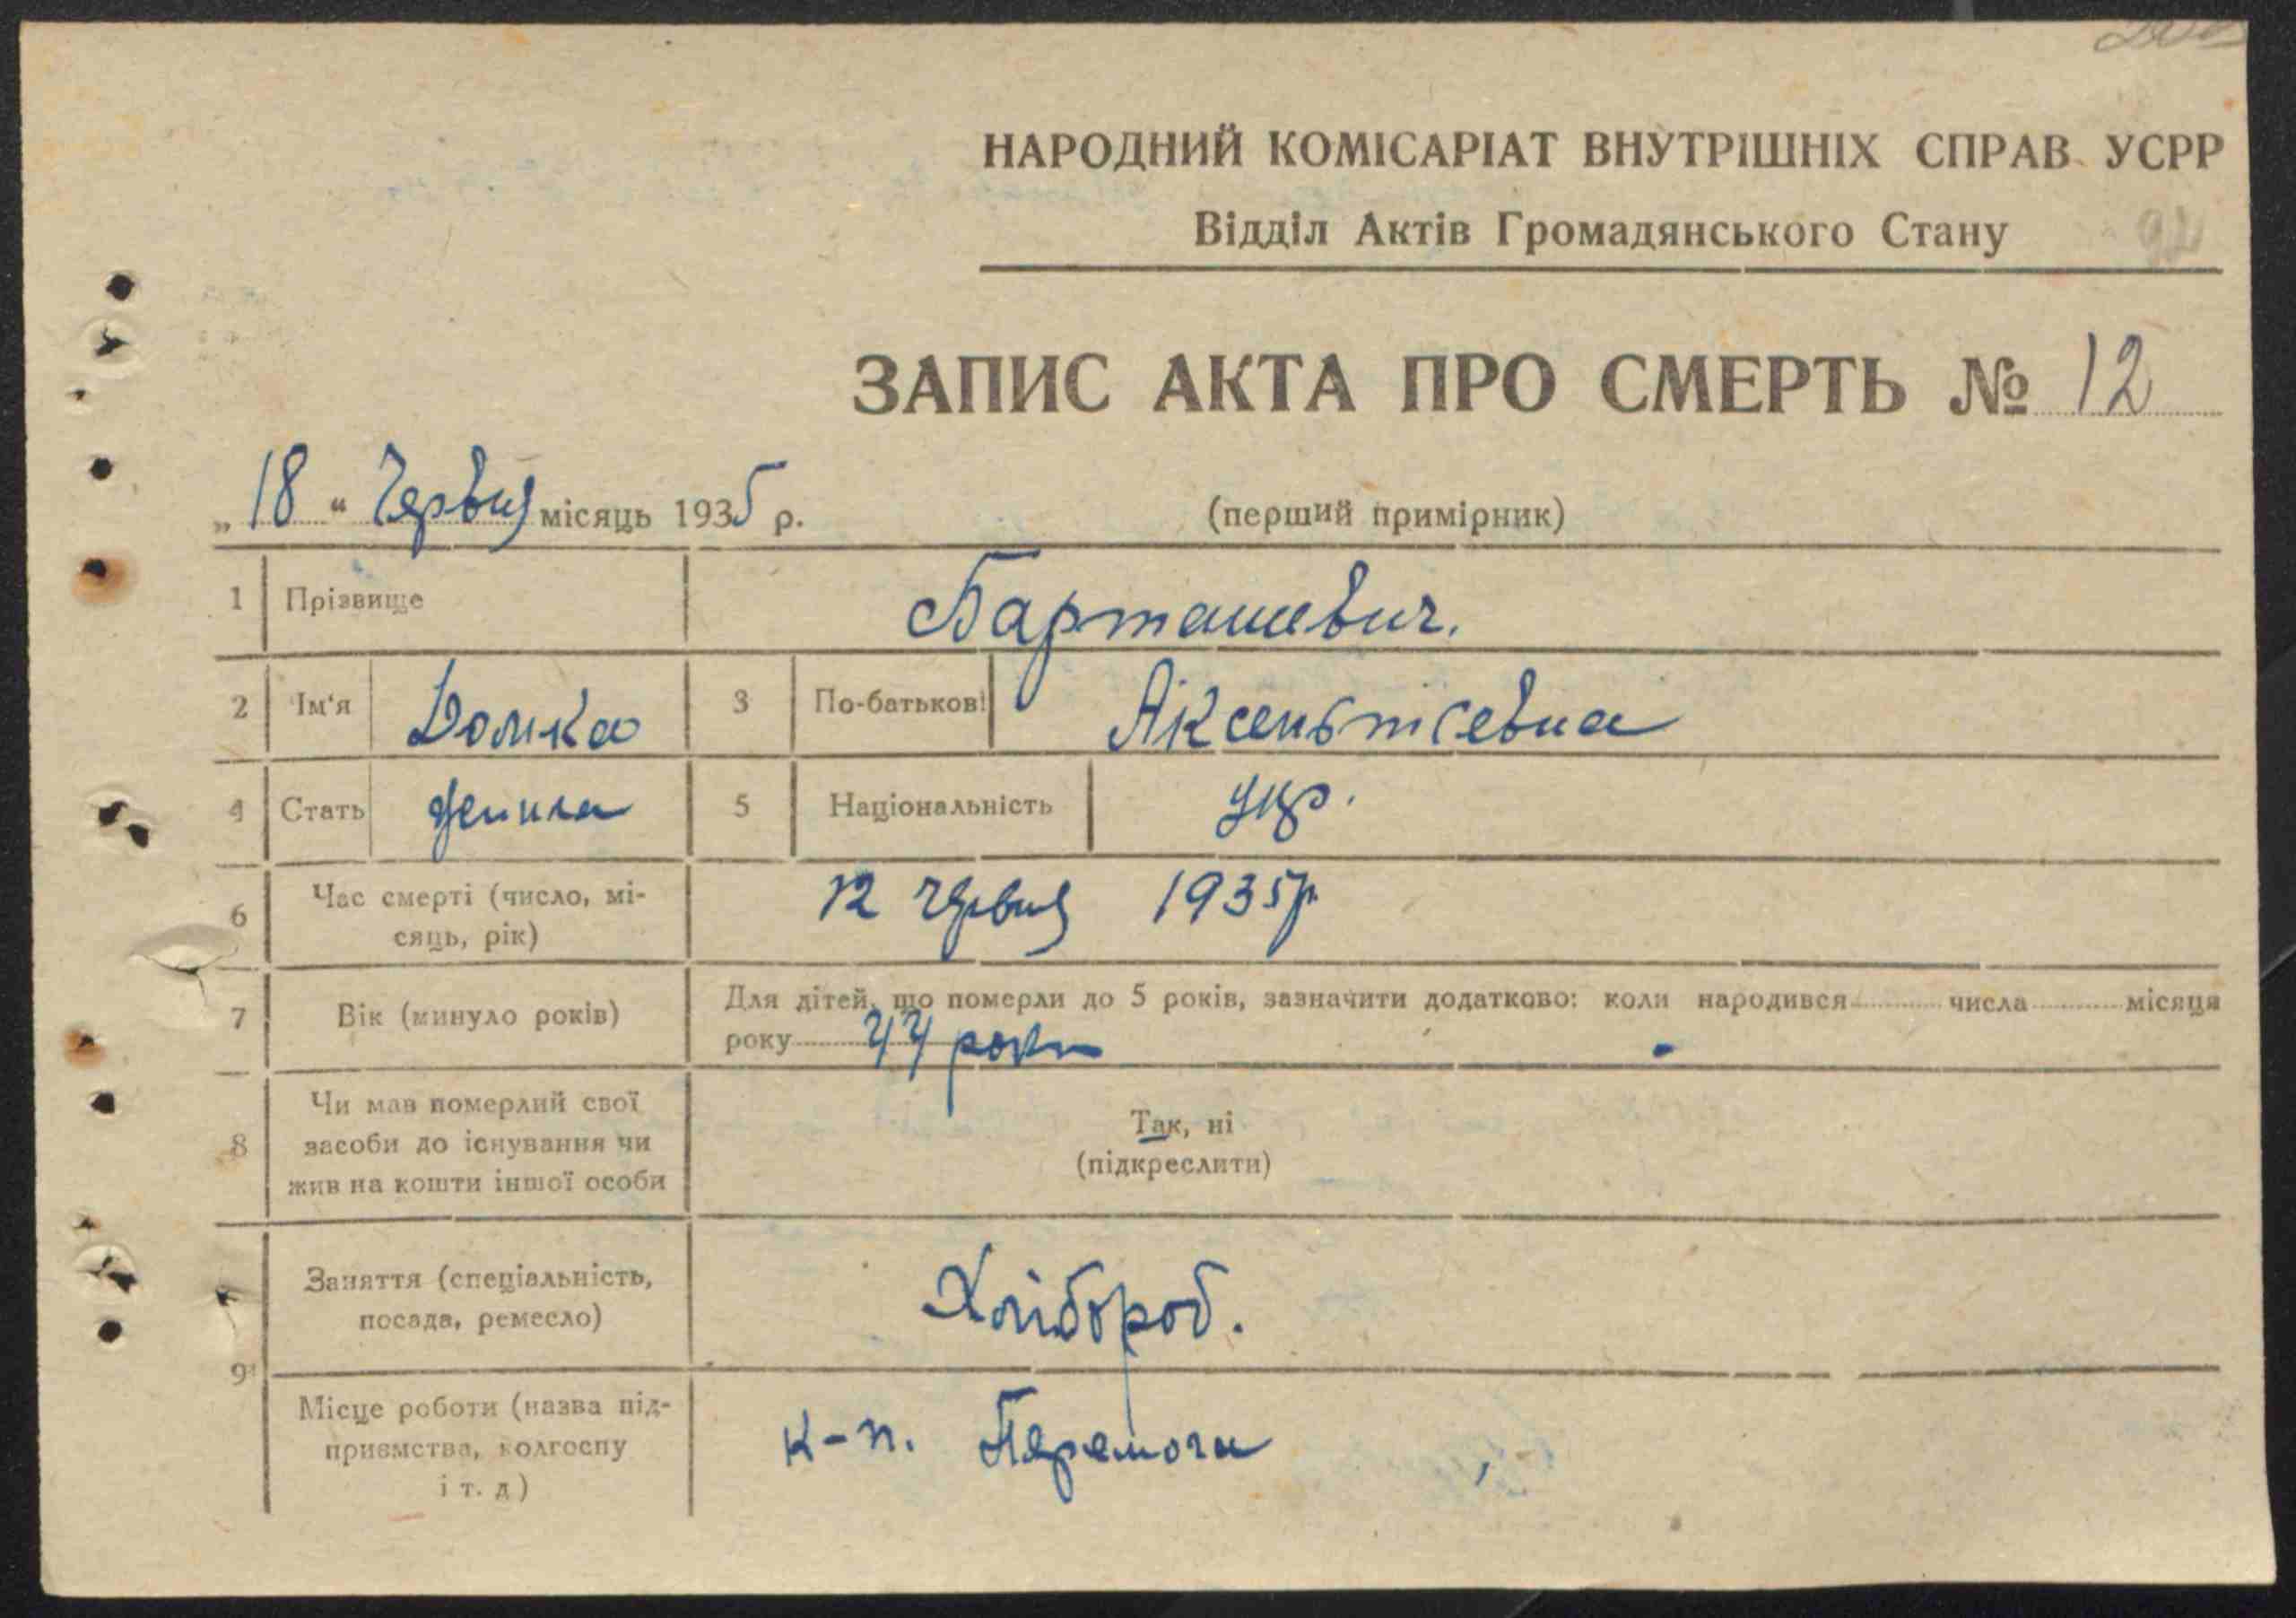 НАРОДНИЙ КОМІСАРІАТ ВНУТРІШНІХ СПРАВ УСРР
Відділ Актів Громадянського Стану
ЗАПИС АКТА ПРО СМЕРТЬ № 12
„18“ Червня місяць 1935 р. (перший примірник)
1 Прізвище Барташевич.
2 Ім'я Домка 3 По-батькові Аксентієвна
4 Стать 5 Національність укр.
6 Час смерті (число, мі-
сяць, рік) 12 червня 1935р.
7 Вік (минуло років) Для дітей, що померли до 5 років, зазначити додатково: коли народився числа місяця
року 44 роки
8 Чи мав померлий свої
засоби до існування чи
жив на кошти іншої особи
Так, ні
(підкреслити)
9 Заняття (спеціальність,
посада, ремесло) Хлібороб.
Місце роботи (назва під-
приємства, колгоспу
і т. д) к-п. Перемога